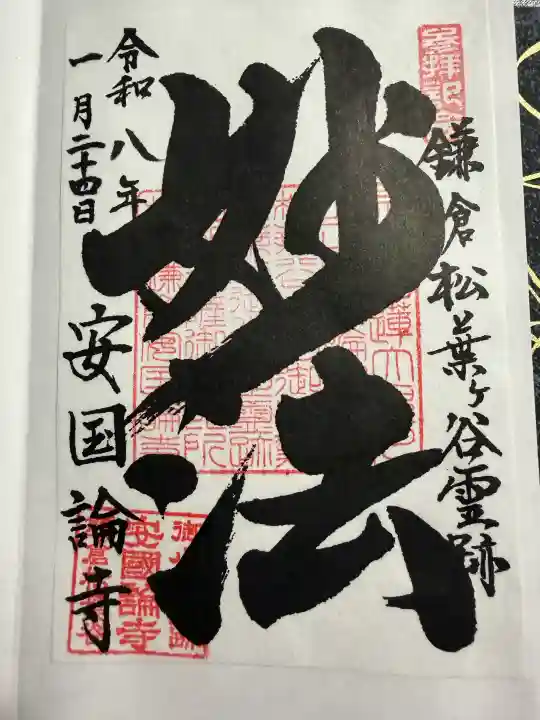 鎌倉松葉ヶ谷霊跡
妙法
令和八年
一月二十四日
安国論寺
安國論寺